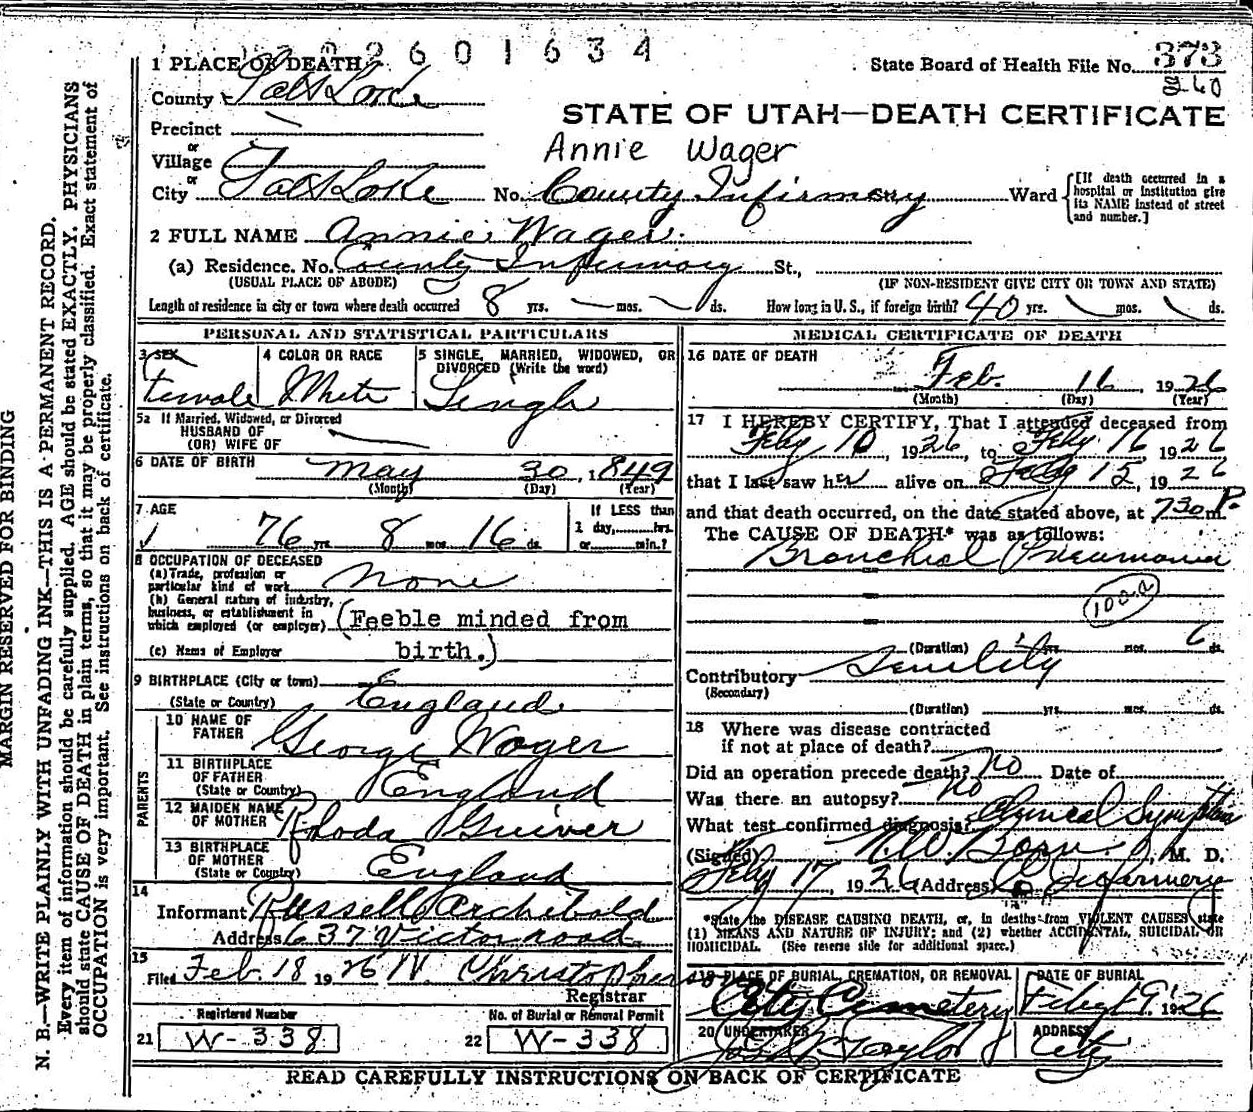 2601634
1 PLACE OF DEATH
State Board of Health File No. 373
260
County Salt Lake
STATE OF UTAH—DEATH CERTIFICATE
Precinct
or
Annie Wager
Village
or
City Salt Lake No. County Infirmary St. Ward
[If death occurred in a
hospital or institution give
its NAME instead of street
and number.]
2 FULL NAME Annie Wager.
(a) Residence. No. County Infirmary St.,
(USUAL PLACE OF ABODE) (IF NON-RESIDENT GIVE CITY OR TOWN AND STATE)
Length of residence in city or town where death occurred 8 yrs. — mos. — ds. How long in U. S., if foreign birth? 40 yrs. mos. ds.
PERSONAL AND STATISTICAL PARTICULARS
3 SEX Female
4 COLOR OR RACE White
5 SINGLE, MARRIED, WIDOWED, OR
DIVORCED (Write the word)
Single
5a If Married, Widowed, or Divorced
HUSBAND OF
(OR) WIFE OF
6 DATE OF BIRTH May 30, 1849
(Month) (Day) (Year)
7 AGE
76 yrs. 8 mos. 16 ds.
If LESS than
1 day,......hrs.
or......min.?
8 OCCUPATION OF DECEASED
(a) Trade, profession or
particular kind of work None
(b) General nature of industry,
business, or establishment in
which employed (or employer) (Feeble minded from
(c) Name of Employer birth.)
9 BIRTHPLACE (City or town)
(State or Country) England
PARENTS
10 NAME OF
FATHER George Wager
11 BIRTHPLACE
OF FATHER
(State or Country) England
12 MAIDEN NAME
OF MOTHER Rhoda Guiver
13 BIRTHPLACE
OF MOTHER
(State or Country) England
14
Informant Russell Archibald
Address 637 Victor road
15
Filed Feb. 18 1926 N. Christophersen
Registrar
Registered Number No. of Burial or Removal Permit
21 W-338 22 W-338
MEDICAL CERTIFICATE OF DEATH
16 DATE OF DEATH
Feb. 16 1926
(Month) (Day) (Year)
17 I HEREBY CERTIFY, That I attended deceased from
Feby 10, 1926, to Feby 16 1926
that I last saw her alive on Feby 15, 1926
and that death occurred, on the date stated above, at 730 P. m.
The CAUSE OF DEATH* was as follows:
Bronchial Pneumonia
(Duration) yrs. mos. 6 ds.
Contributory Senility
(Secondary)
(Duration) yrs. mos. ds.
18 Where was disease contracted
if not at place of death?
Did an operation precede death? No Date of
Was there an autopsy? No
What test confirmed diagnosis? Clynical Symptoms
(Signed) M. D.
Feby 17, 1926 (Address) Co Infirmary
*State the DISEASE CAUSING DEATH, or, in deaths from VIOLENT CAUSES, state
(1) MEANS AND NATURE OF INJURY; and (2) whether ACCIDENTAL, SUICIDAL, OR
HOMICIDAL. (See reverse side for additional space.)
19 PLACE OF BURIAL, CREMATION, OR REMOVAL
City Cemetery
DATE OF BURIAL
Feby 19, 1926
20 UNDERTAKER
Taylor
ADDRESS
City
READ CAREFULLY INSTRUCTIONS ON BACK OF CERTIFICATE
MARGIN RESERVED FOR BINDING
N. B.—WRITE PLAINLY WITH UNFADING INK—THIS IS A PERMANENT RECORD.
Every item of information should be carefully supplied. AGE should be stated EXACTLY. PHYSICIANS
should state CAUSE OF DEATH in plain terms, so that it may be properly classified. Exact statement of
OCCUPATION is very important. See instructions on back of certificate.